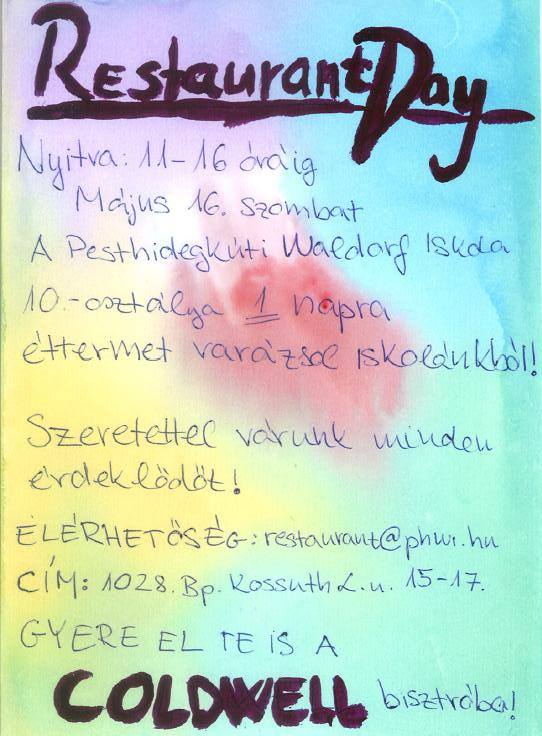 Restaurant Day
Nyitva: 11-16 óráig
Május 16. szombat
A Pesthidegkúti Waldorf Iskola
10.-osztálya 1 napra
éttermet varázsol iskolánkból!
Szeretettel várunk minden
érdeklődőt!
ELÉRHETŐSÉG: restaurant@phwi.hu
CÍM: 1028. Bp. Kossuth L. u. 15-17.
GYERE EL TE IS A
COLDWELL bisztróba!